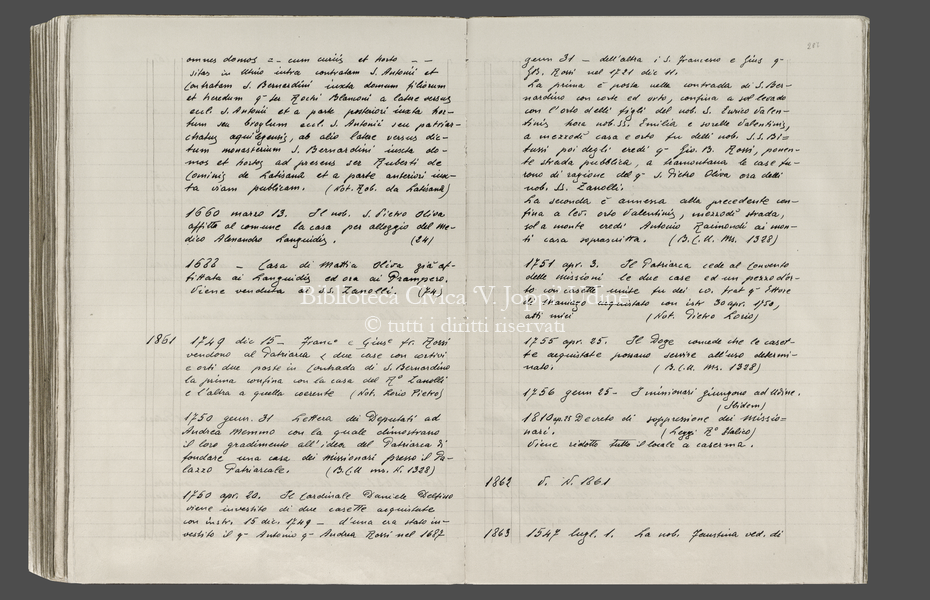 omnes domos = – cum curiis et horto – –
sitas in Utino intra contratam S. Antonii et
Contratam S. Bernardini iuxta domum filiorum
et heredum q.m ser Rochi Blamoni a latere versus
eccl. S. Antonii et a parte posteriori iuxta hor-
tum seu eccl. S. Antonii seu patriar-
chatus aquilegensis, ab alio latere versus dic-
tum monasterium S. Bernardini iuxta do-
mos et hortos ad presens ser Ruberti de
Cominis de Latisana et a parte anteriori iux-
ta viam publicam. (Not. Rob. da Latisana)
1660 marzo 13. Il nob. S. Pietro Oliva
affitta al comune la casa per alloggio del me-
dico Alessandro Languidis. (24)
1688 – Casa di Mattia Oliva già af-
fittata ai Languidis ed ora ai Prampero.
Viene venduta ai SS. Zanolli. (74)
1861 1749 dic 15 – Franc.o e Gius.e fr. Rossi
vendono al Patriarca due case con cortivi
e orti due poste in Contrada di S. Bernardino
la prima confina con la casa del R.o Zanolli
e l'altra a quella coerente (Not. Lorio Pietro)
1750 genn. 31 Lettera dei Deputati ad
Andrea Memmo con la quale dimostrano
il loro gradimento all'idea del Patriarca di
fondare una casa dei missionari presso il Pa-
lazzo Patriarcale. (B.C.U. ms. K. 1328)
1750 apr. 20. Il Cardinale Daniele Delfino
viene investito di due casette acquistate
con instr. 15 dic. 1749 – d'una era stato in-
vestito il q.m Antonio q.m Andrea Rossi nel 1687
genn 31 – dell'altra i S. Francesco e Gius q.m
GB. Rossi nel 1721 dic 11.
La prima è posta nella contrada di S. Ber-
nardino con corte ed orto, confina a sol levado
con l'orto delli figli del nob. S. Enrico Valen-
tinis hora nob. SS. Emilia e sorelle Valentinis,
a mezzodì casa e orto fu delli nob. S.S. Bi-
tussi poi degli eredi q.m Gio. B. Rossi, ponen-
te strada pubblica, a tramontana le case fu-
rono di ragione del q.m S. Pietro Oliva ora delli
nob. SS. Zanolli.
La seconda è annessa alla precedente con-
fina a lev. orto Valentinis, mezzodì strada,
sol a monte eredi Antonio Raimondi ai mon-
ti casa soprascritta. (B.C.U. Ms. 1328)
1751 apr. 3. Il Patriarca cede al Convento
delle missioni le due case ed un pezzo d'or-
to con casette unite fu dei co. frat. q.m Ettore
di Maniago acquistato con istr 30 apr. 1750,
atti miei (Not. Pietro Lorio)
1755 apr. 25. Il Doge concede che le caset-
te acquistate possano servire all'uso determi-
nato. (B.C.U. Ms. 1328)
1756 genn 25 – I missionari giungono ad Udine.
(Ibidem)
1810 ap. 25 Decreto di soppressione dei Missio-
nari. (Leggi R.o Italico)
Viene ridotto tutto il locale a caserma.
1862 V. N. 1861
1863 1547 lugl. 1. La nob. Faustina ved. di
Biblioteca Civica 'V. Joppi' Udine
© tutti i diritti riservati